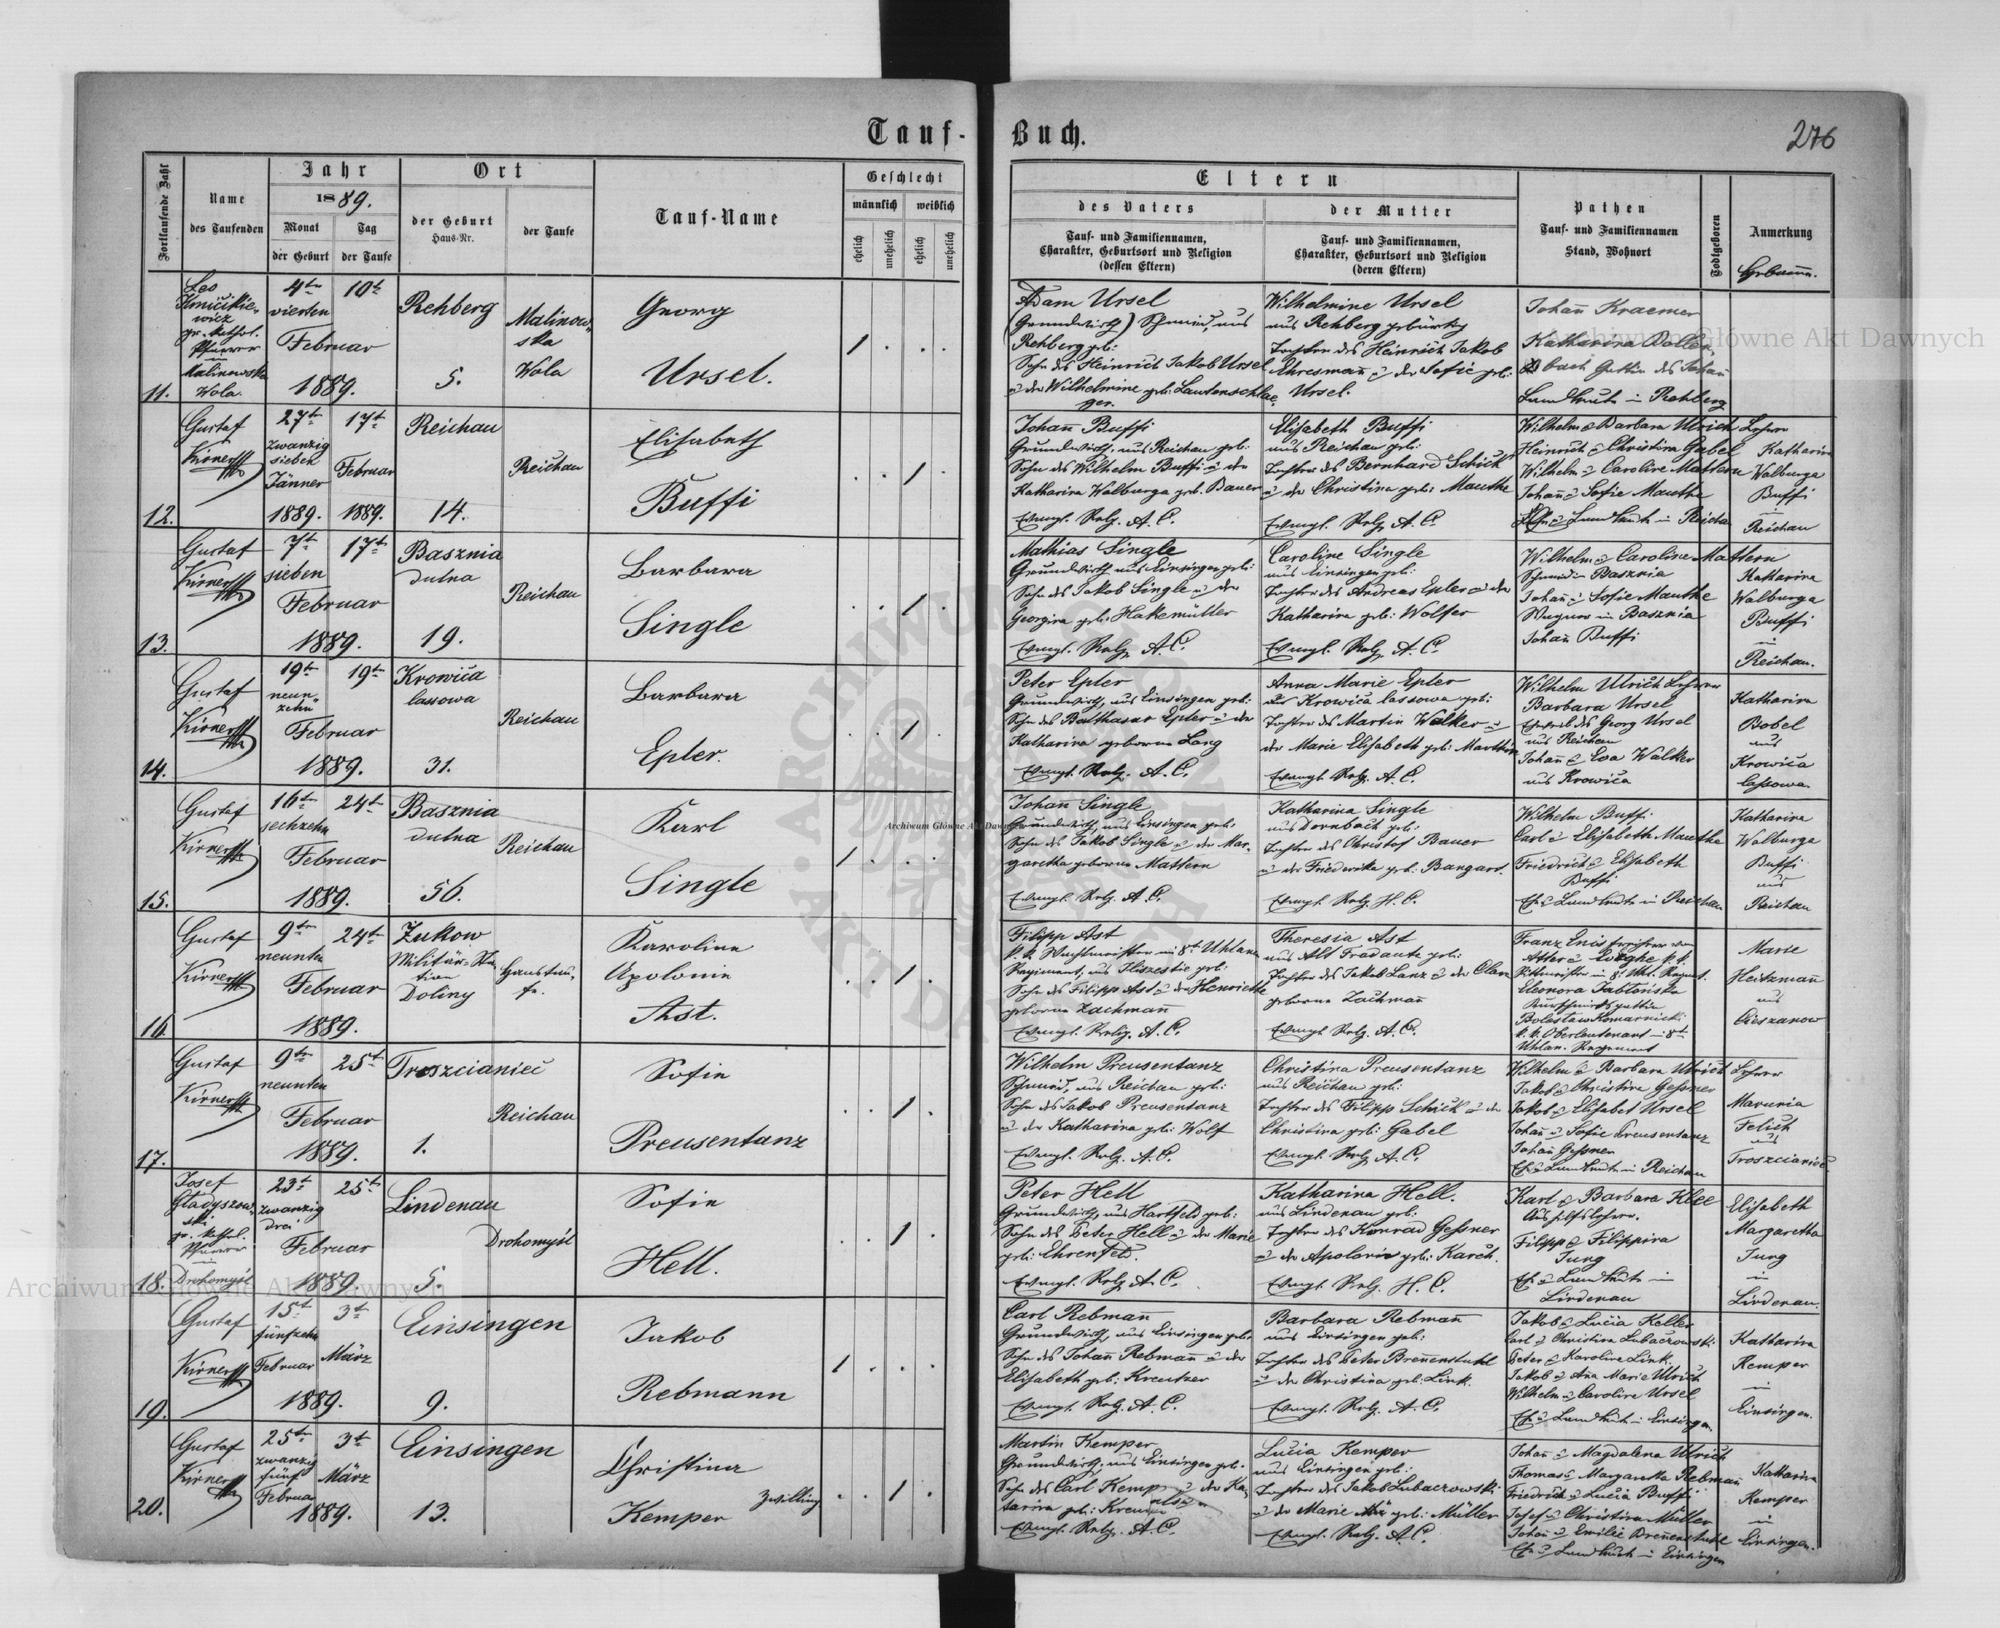 Tauf-Buch.
276
Fortlaufende Zahl
Name
des Taufenden
Jahr
1889.
Monat
der Geburt
Tag
der Taufe
Ort
der Geburt
Haus-Nr.
der Taufe
Tauf-Name
Geschlecht
männlich
weiblich
ehelich
unehelich
ehelich
unehelich
Eltern
des Vaters
Tauf- und Familiennamen,
Charakter, Geburtsort und Religion
(dessen Eltern)
der Mutter
Tauf- und Familiennamen,
Charakter, Geburtsort und Religion
(deren Eltern)
Pathen
Tauf- und Familiennamen
Stand, Wohnort
Todtgeboren
Anmerkung
11.
Leo
gr. kathol.
Pfarrer
in
Malinowska
Wola
4ten
vierten
10t
Februar
1889.
Rehberg
5.
Malinow-
ska
Wola
Georg
Ursel.
1
Adam Ursel
(Grundwirth) Schmied, aus
Rehberg geb:
Sohn des Heinrich Jakob Ursel
u der Wilhelmine geb: Lautenschlae-
ger.
Wilhelmine Ursel
aus Rehberg gebürtig
Tochter des Heinrich Jakob
Ehresmann u der Sofie geb:
Ursel.
Johann Kraemer
Katharina Dollen-
bach Gattin des Johann
Landleute in Rehberg
12.
Gustaf
Kirner
27ten
zwanzig
sieben
Jänner
1889.
17t
Februar
1889.
Reichau
14.
Reichau
Elisabeth
Buffi
1
Johann Buffi
Grundwirth, aus Reichau geb:
Sohn des Wilhelm Buffi u der
Katharina Walburga geb. Bauer
Evangl. Relg. A.C.
Elisabeth Buffi
aus Reichau geb:
Tochter des Bernhard Schick
u der Christina geb: Mauthe
Evangl. Relg A.C.
Wilhelm u Barbara Ulrich Lehrer
Heinrich u Christina Gabel
Wilhelm u Caroline Mattern
Johann u Sofie Mauthe
Landleute in Reichau
Katharina
Walburga
Buffi
in
Reichau
13.
Gustaf
Kirner
7t
sieben
17t
Februar
1889.
Basznia
dulna
19.
Reichau
Barbara
Single
1
Mathias Single
Grundwirth aus Einsingen geb:
Sohn des Jakob Single u der
Georgina geb: Hakemüller
Evangl. Relg A.C.
Caroline Single
aus Einsingen geb:
Tochter des Andreas Epler u der
Katharina geb: Wolfer
Evangl. Relg A.C.
Wilhelm u Caroline Mattern
Schmied in Basznia
Johann u Sofie Mauthe
Wagner in Basznia
Johann Buffi
Katharina
Walburga
Buffi
in
Reichau.
14.
Gustaf
Kirner
19ten
neun-
zehn
19t
Februar
1889.
Krowica
lassowa
31.
Reichau
Barbara
Epler.
1
Peter Epler
Grundwirth, aus Einsingen geb:
Sohn des Balthasar Epler u der
Katharina geborne Lang
Evangl. Relg. A.C.
Anna Marie Epler
aus Krowica lassowa geb:
Tochter des Martin Walker u
der Marie Elisabeth geb: Marthin
Evangl Relg. A.C.
Wilhelm Ulrich Lehrer
Barbara Ursel
Eheweib des Georg Ursel
aus Reichau
Johann u Eva Walker
aus Krowica
Katharina
Bobel
aus
Krowica
lassowa
15.
Gustaf
Kirner
16ten
sechzehn
24t
Februar
1889.
Basznia
dulna
56.
Reichau
Karl
Single
1
Johann Single
Grundwirth, aus Einsingen geb:
Sohn des Jakob Single u der Mar-
garetha geborne Mattern
Evangl. Relg. A.C.
Katharina Single
aus Dornbach geb:
Tochter des Christof Bauer
u der Friederika geb: Bangart.
Evangl. Relg. H.C.
Wilhelm Buffi
Carl u Elisabeth Mauthe
Friedrich u Elisabeth
Buffi
Ehe u Landleute in Reichau
Katharina
Walburga
Buffi
aus
Reichau
16.
Gustaf
Kirner
9ten
neunten
24t
Februar
1889.
Zukow
Militär-Sta-
tion
Doliny
Haustau-
fe.
Karoline
Apolonia
Ast.
1
Filipp Ast
k.k. Wachtmeister im 8t Uhlanen
Regiment, aus Hliszestie geb:
Sohn des Filipp Ast u der Henriette
geborne Zachmann
Evangl. Relg. A.C.
Theresia Ast
aus Alt Fradautz geb:
Tochter des Jakob Lanz u der Clara
geborne Zachmann
Evangl. Relg. A.C.
Franz Enis Freiherr von
Atter u Iveghe k.k.
Rittmeister im 8t Uhl. Regmt.
Eleonora Jabłońska
Bolesław Komarnicki
k.k. Oberleutenant im 8t
Uhlan. Regement
Marie
Heitzmann
aus
Cieszanow
17.
Gustaf
Kirner
9ten
neunten
25t
Februar
1889.
Troszcianiec
1.
Reichau
Sofie
Preusentanz
1
Wilhelm Preusentanz
Schmied, aus Reichau geb:
Sohn des Jakob Preusentanz
u der Katharina geb: Wolf
Evangl. Relg. A.C.
Christina Preusentanz
aus Reichau geb:
Tochter des Filipp Schick u der
Christina geb: Gabel
Evangl. Relg A.C.
Wilhelm u Barbara Ulrich Lehrer
Jakob u Christina Geßner
Jakob u Elisabet Ursel
Johann u Sofie Preusentanz
Johann Geßner
Ehe u Landleute in Reichau
Marunia
Felick
aus
Troszcianiec
18.
Josef
Gladyszow-
ski
gr. kathol.
Pfarrer
in
Drohomyśl
23t
zwanzig
drei
25t
Februar
1889.
Lindenau
5.
Drohomyśl
Sofie
Hell.
1
Peter Hell
Grundwirth, aus Hartfeld geb:
Sohn des Peter Hell u der Marie
geb: Ehrenfeld.
Evangl. Relg A.C.
Katharina Hell.
aus Lindenau geb:
Tochter des Konrad Geßner
u der Apolonia geb: Karch.
Evangl. Relg. H.C.
Karl u Barbara Klee
Aushilfslehrer.
Filipp u Filippina
Jung
Ehe u Landleute in
Lindenau
Elisabeth
Margaretha
Jung
in
Lindenau.
19.
Gustaf
Kirner
15t
fünfzehn
Februar
3t
März
1889.
Einsingen
9.
Jakob
Rebmann
1
Carl Rebmann
Grundwirth aus Einsingen geb:
Sohn des Johann Rebmann u der
Elisabeth geb: Kreutzer
Evangl. Relg. A.C.
Barbara Rebmann
aus Einsingen geb:
Tochter des Peter Brennenstuhl
u der Christina geb: Link.
Evangl. Relg. A.C.
Jakob u Lucia Keller
Carl u Christina Lubaczowski
Peter u Karoline Link.
Jakob u Ana Marie Ulrich
Wilhelm u Caroline Ursel
Ehe u Landleute in Einsingen.
Katharina
Kemper
in
Einsingen.
20.
Gustaf
Kirner
25ten
zwanzig
fünf
Februar
3t
März
1889.
Einsingen
13.
Christina
Zwilling
Kemper
1
Martin Kemper
Grundwirth, aus Einsingen geb:
Sohn des Carl Kemper u der Ka-
tarina geb:
Evangl. Relg. A.C.
Lucia Kemper
aus Einsingen geb:
Tochter des Jakob Lubaczowski
u der Marie geb: Müller
Evangl. Relg. A.C.
Johann u Magdalena Ulrich
Thomas u Margaretha Rebmann
Friedrich u Lucia Buffi
Josef u Christina Müller
Johann u Emilie Brennenstuhl
Ehe u Landleute in Einsingen
Katharina
Kemper
in
Einsingen.
Archiwum Główne Akt Dawnych
Archiwum Główne Akt Dawnych
Archiwum Główne Akt Dawnych